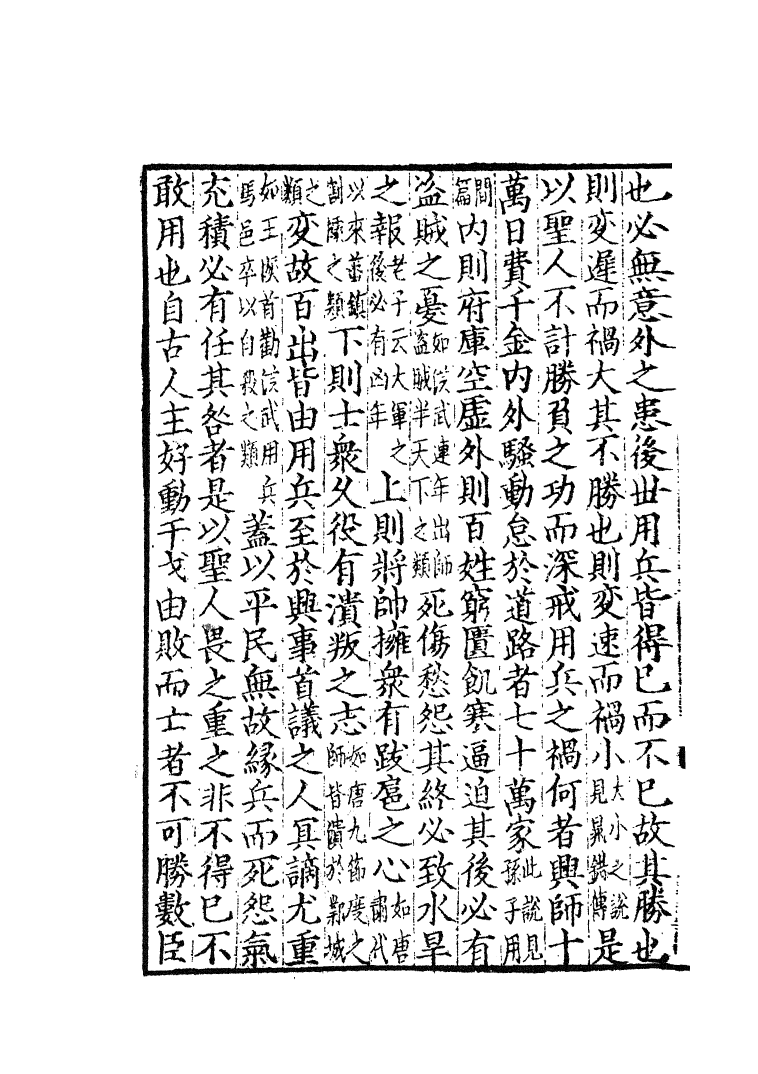 也必無意外之患後世用兵皆得已而不已故其勝也
則変遲而禍大其不勝也則変速而禍小大小之說見晁錯傳是
以聖人不計勝負之功而深戒用兵之禍何者興師十
萬日費千金内外騷動怠於道路者七十萬家此說見孫子用
間篇内則府庫空虛外則百姓窮匱飢寒逼迫其後必有
盜賊之憂如漢武連年出師盜賊半天下之類死傷愁怨其終必致水旱
之報老子云大軍之後必有凶年上則將帥擁衆有跋扈之心如唐肅代
以來藩鎮割據之類下則士衆久役有潰叛之志如唐九節度之師皆潰於鄴城
之類変故百出皆由用兵至於興事首議之人冥謫尤重
如王恢首勸漢武用兵馬邑卒以自殺之類蓋以平民無故緣兵而死怨氣
充積必有任其咎者是以聖人畏之重之非不得已不
敢用也自古人主好動干戈由敗而亡者不可勝數臣